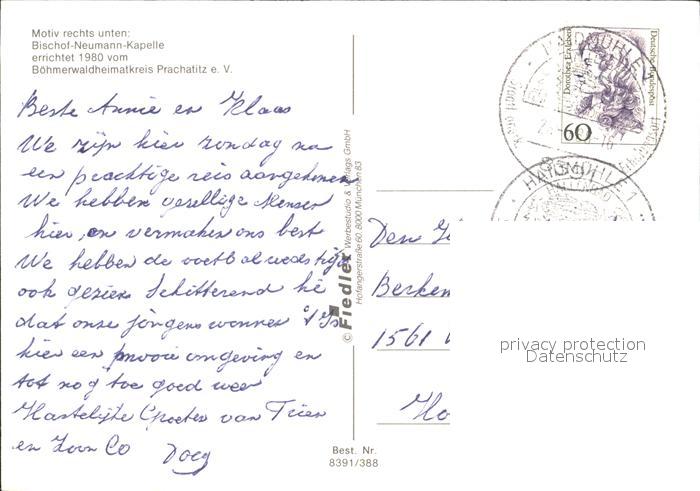 Motiv rechts unten:
Bischof-Neumann-Kapelle
errichtet 1980 vom
Böhmerwaldheimatkreis Prachatitz e. V.
Beste Annie en Klaas
We zijn hier zondag na
een prachtige reis aangekomen
We hebben gesellige Mensen
hier, en vermaken ons best
We hebben de voetbalwedstrijd
ook gezien Schitterend hé
dat onze jongens wonnen 't Is
hier een mooie omgeving en
tot nog toe goed weer
Hartelijke Groeten van Trien
en Zoon Co
© Fiedler Werbestudio & Verlags GmbH
Hofangerstraße 60, 8000 München 83
Best. Nr.
8391/388
Dorothea Erxleben
Deutsche Bundespost
60
HAIDMÜHLE 1
Berken
1561
privacy protection
Datenschutz